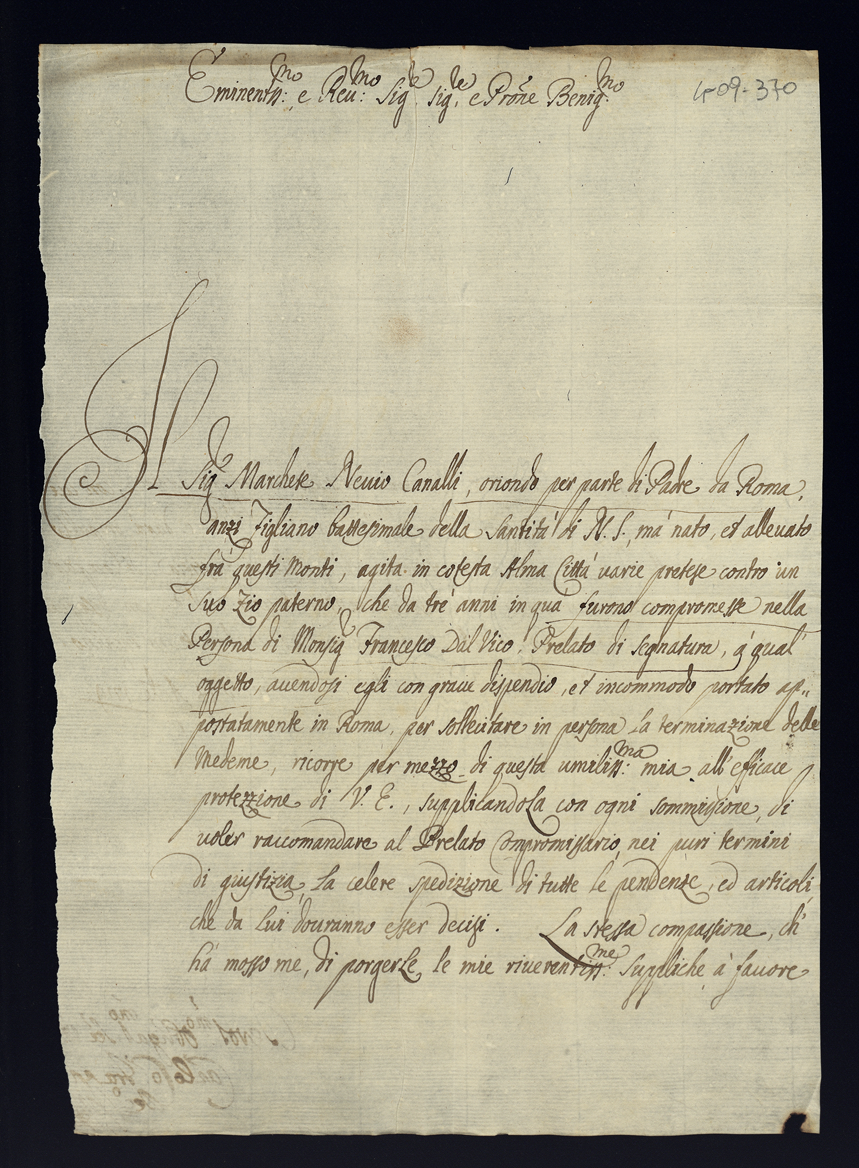 Eminentiss:mo e Reu:mo Sig.re Sig.re e Prone Benig.mo
4-09-370
Il Sig.re Marchese Neuio Canalli, oriondo per parte di Padre da Roma,
anzi Figliano battesimale della Santità di N. S., mà nato, et alleuato
frà questi Monti, agita in cotesta Alma Città varie pretese contro un
suo Zio paterno, che da trè anni in quà furono compromesse nella
Persona di Monsig.re Francesco Dal Vico, Prelato di Segnatura, a' qual'
oggetto, auendosi egli con graue dispendio, et incommodo portato ap,,
postatamente in Roma, per sollecitare in persona la terminazione delle
Medeme, ricorre per mezzo di questa umiliss:ma mia all'efficace
protezzione di V. E., supplicandola con ogni sommissione, di
uoler raccomandare al Prelato Compromissario nei puri termini
di giustizia, la celere spedizione di tutte le pendenze, ed articoli,
che da lui douranno esser decisi. La stessa compassione, ch'
hà mosso me, di porgerLe le mie riuerentiss:me suppliche à fauore